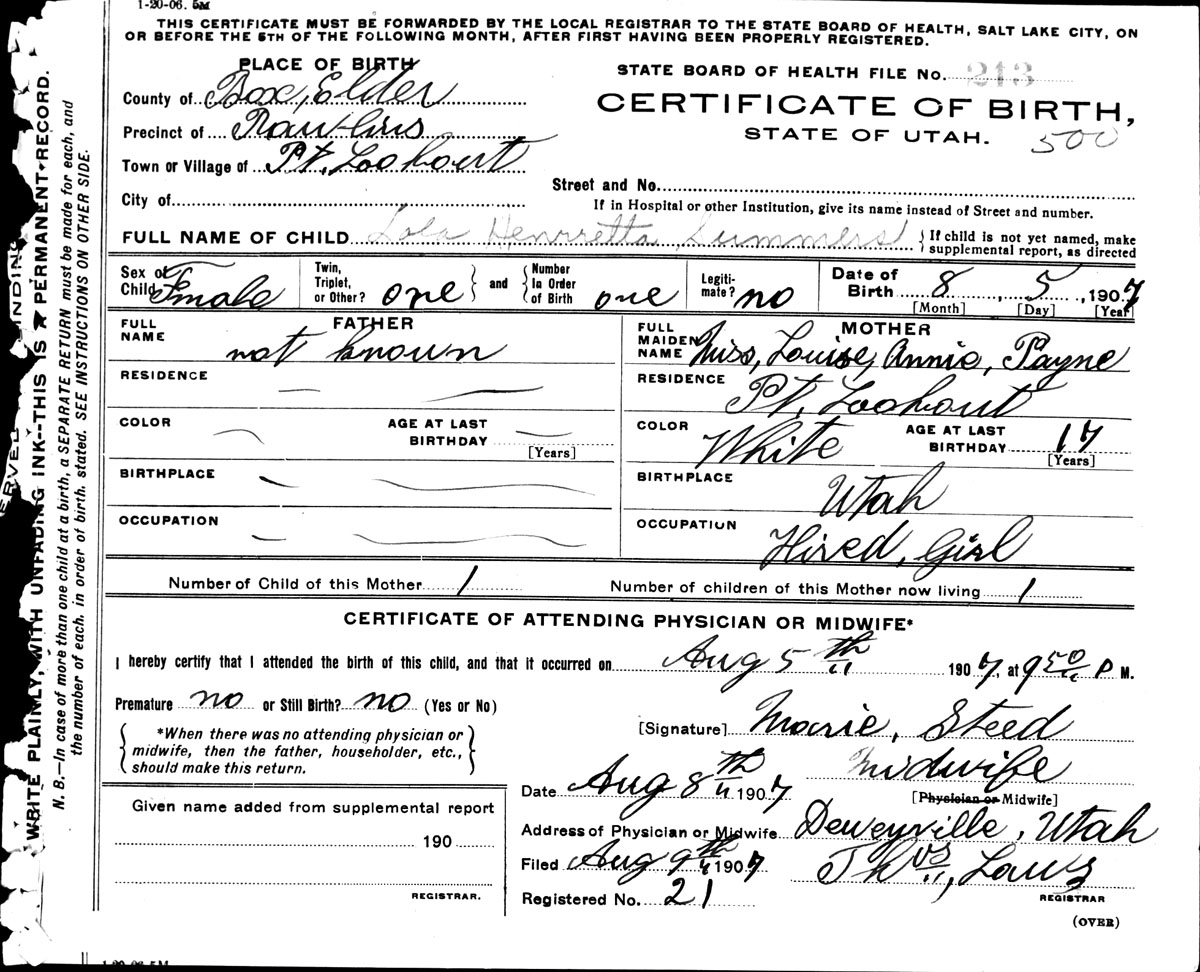 1-20-06. 5M
THIS CERTIFICATE MUST BE FORWARDED BY THE LOCAL REGISTRAR TO THE STATE BOARD OF HEALTH, SALT LAKE CITY, ON
OR BEFORE THE 5TH OF THE FOLLOWING MONTH, AFTER FIRST HAVING BEEN PROPERLY REGISTERED.
PLACE OF BIRTH
County of Box, Elder
Precinct of Rawlins
Town or Village of Pt, Lookout
City of
STATE BOARD OF HEALTH FILE No. 213
CERTIFICATE OF BIRTH,
STATE OF UTAH.
500
Street and No.
If in Hospital or other Institution, give its name instead of Street and number.
FULL NAME OF CHILD Lola Henrietta Summers
{If child is not yet named, make
supplemental report, as directed
Sex of Child Female
Twin, Triplet, or Other? one } and { Number In Order of Birth one
Legitimate? no
Date of Birth 8, 5, 1907
[Month] [Day] [Year]
FATHER
FULL NAME not known
RESIDENCE
COLOR
AGE AT LAST BIRTHDAY
[Years]
BIRTHPLACE
OCCUPATION
MOTHER
FULL MAIDEN NAME Miss, Louise, Annie, Payne
RESIDENCE Pt, Lookout
COLOR White
AGE AT LAST BIRTHDAY 17
[Years]
BIRTHPLACE Utah
OCCUPATION Hired, Girl
Number of Child of this Mother 1
Number of children of this Mother now living 1
CERTIFICATE OF ATTENDING PHYSICIAN OR MIDWIFE*
I hereby certify that I attended the birth of this child, and that it occurred on Aug 5th 1907, at 9 50 P M.
Premature no or Still Birth? no (Yes or No)
{ *When there was no attending physician or
midwife, then the father, householder, etc.,
should make this return. }
[Signature] Marie, Steed
Midwife
[Physician or Midwife]
Date Aug 8th 1907
Address of Physician or Midwife Deweyville, Utah
Filed Aug 9th 1907
Thos, Laws
REGISTRAR
Registered No. 21
(OVER)
Given name added from supplemental report
190
REGISTRAR.
WRITE PLAINLY, WITH UNFADING INK--THIS IS A PERMANENT RECORD.
N. B.—In case of more than one child at a birth, a SEPARATE RETURN must be made for each, and
the number of each, in order of birth, stated. SEE INSTRUCTIONS ON OTHER SIDE.